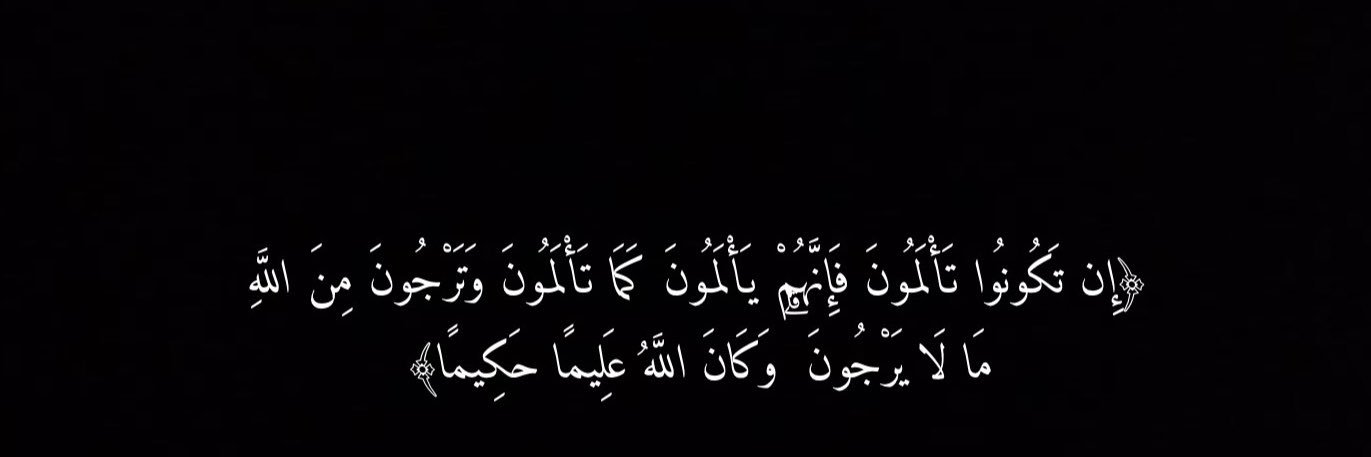 ﴿إِن تَكُونُوا تَأْلَمُونَ فَإِنَّهُمْ يَأْلَمُونَ كَمَا تَأْلَمُونَ وَتَرْجُونَ مِنَ اللَّهِ
مَا لَا يَرْجُونَ وَكَانَ اللَّهُ عَلِيمًا حَكِيمًا﴾